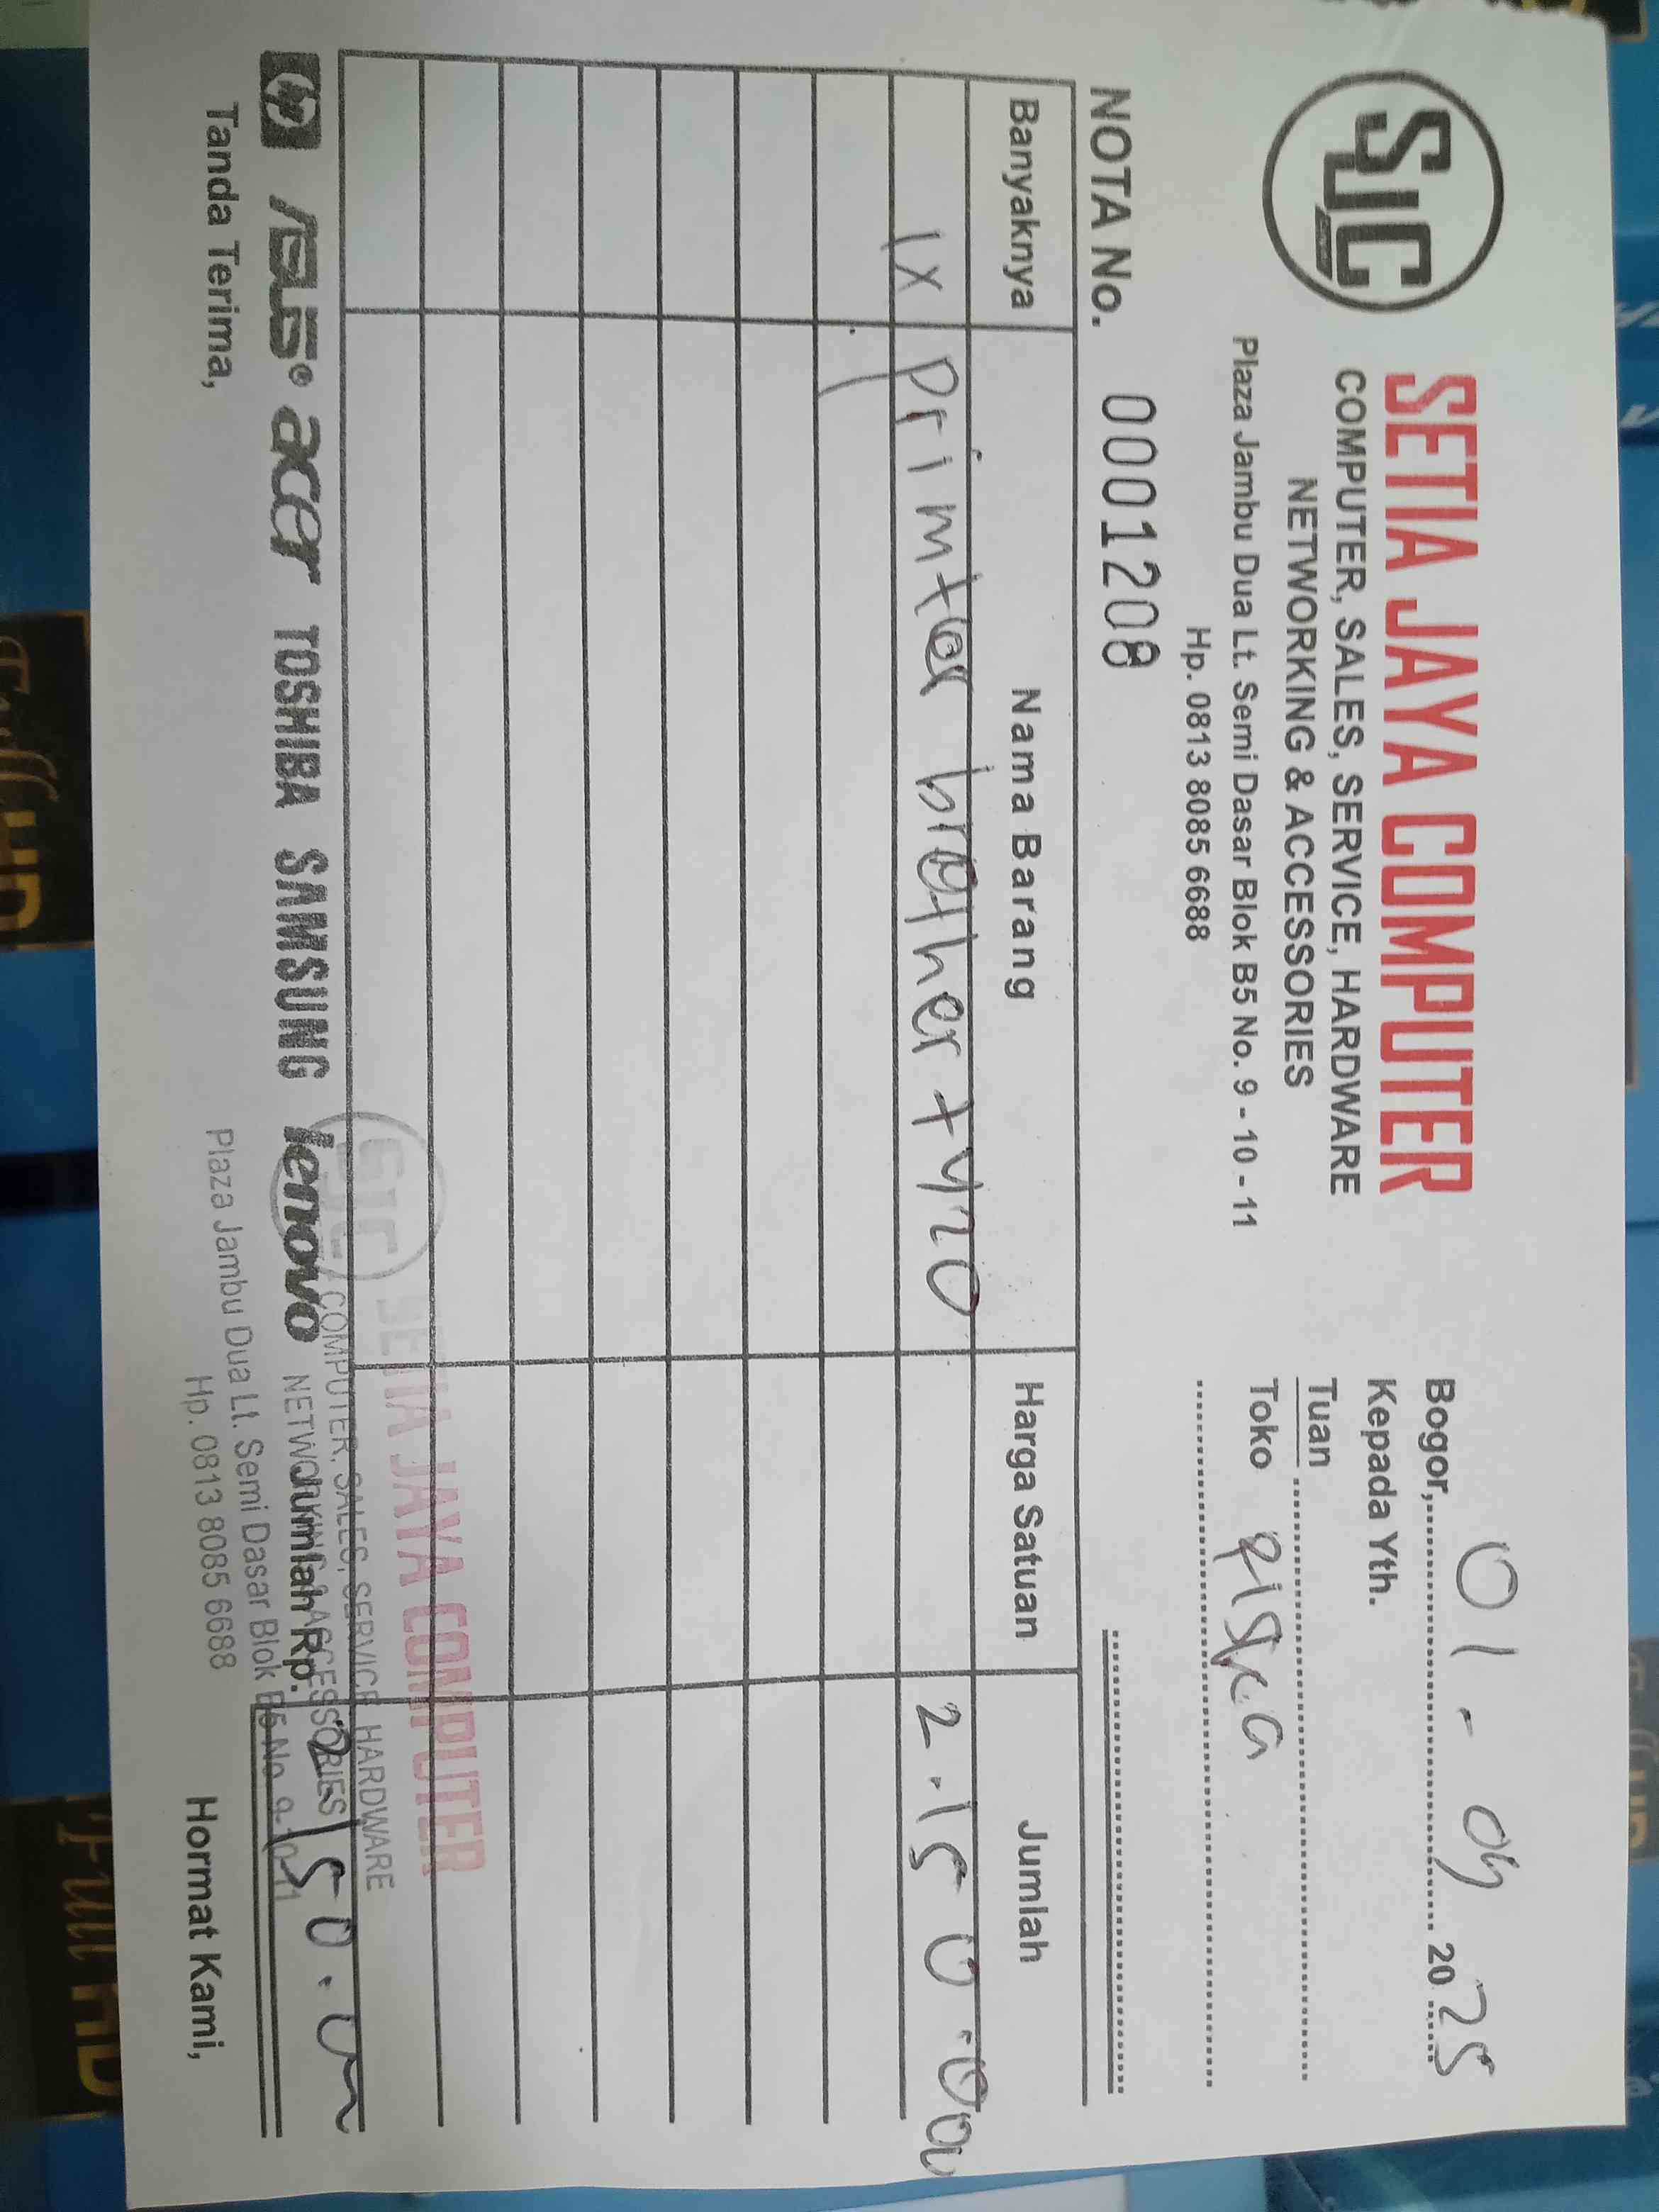 SJC
SETIA JAYA COMPUTER
COMPUTER, SALES, SERVICE, HARDWARE
NETWORKING & ACCESSORIES
Plaza Jambu Dua Lt. Semi Dasar Blok B5 No. 9 - 10 - 11
Hp. 0813 8085 6688
Bogor, 01 - 09 2025
Kepada Yth.
Tuan
Toko
NOTA No. 0001208
Banyaknya Nama Barang Harga Satuan Jumlah
1x Printer brother t420 2.150.000
hp ASUS® acer TOSHIBA SAMSUNG lenovo Jumlah Rp. 2.150.000
SJC SETIA JAYA COMPUTER
COMPUTER, SALES, SERVICE, HARDWARE
NETWORKING & ACCESSORIES
Plaza Jambu Dua Lt. Semi Dasar Blok B5 No. 9-10-11
Hp. 0813 8085 6688
Tanda Terima, Hormat Kami,